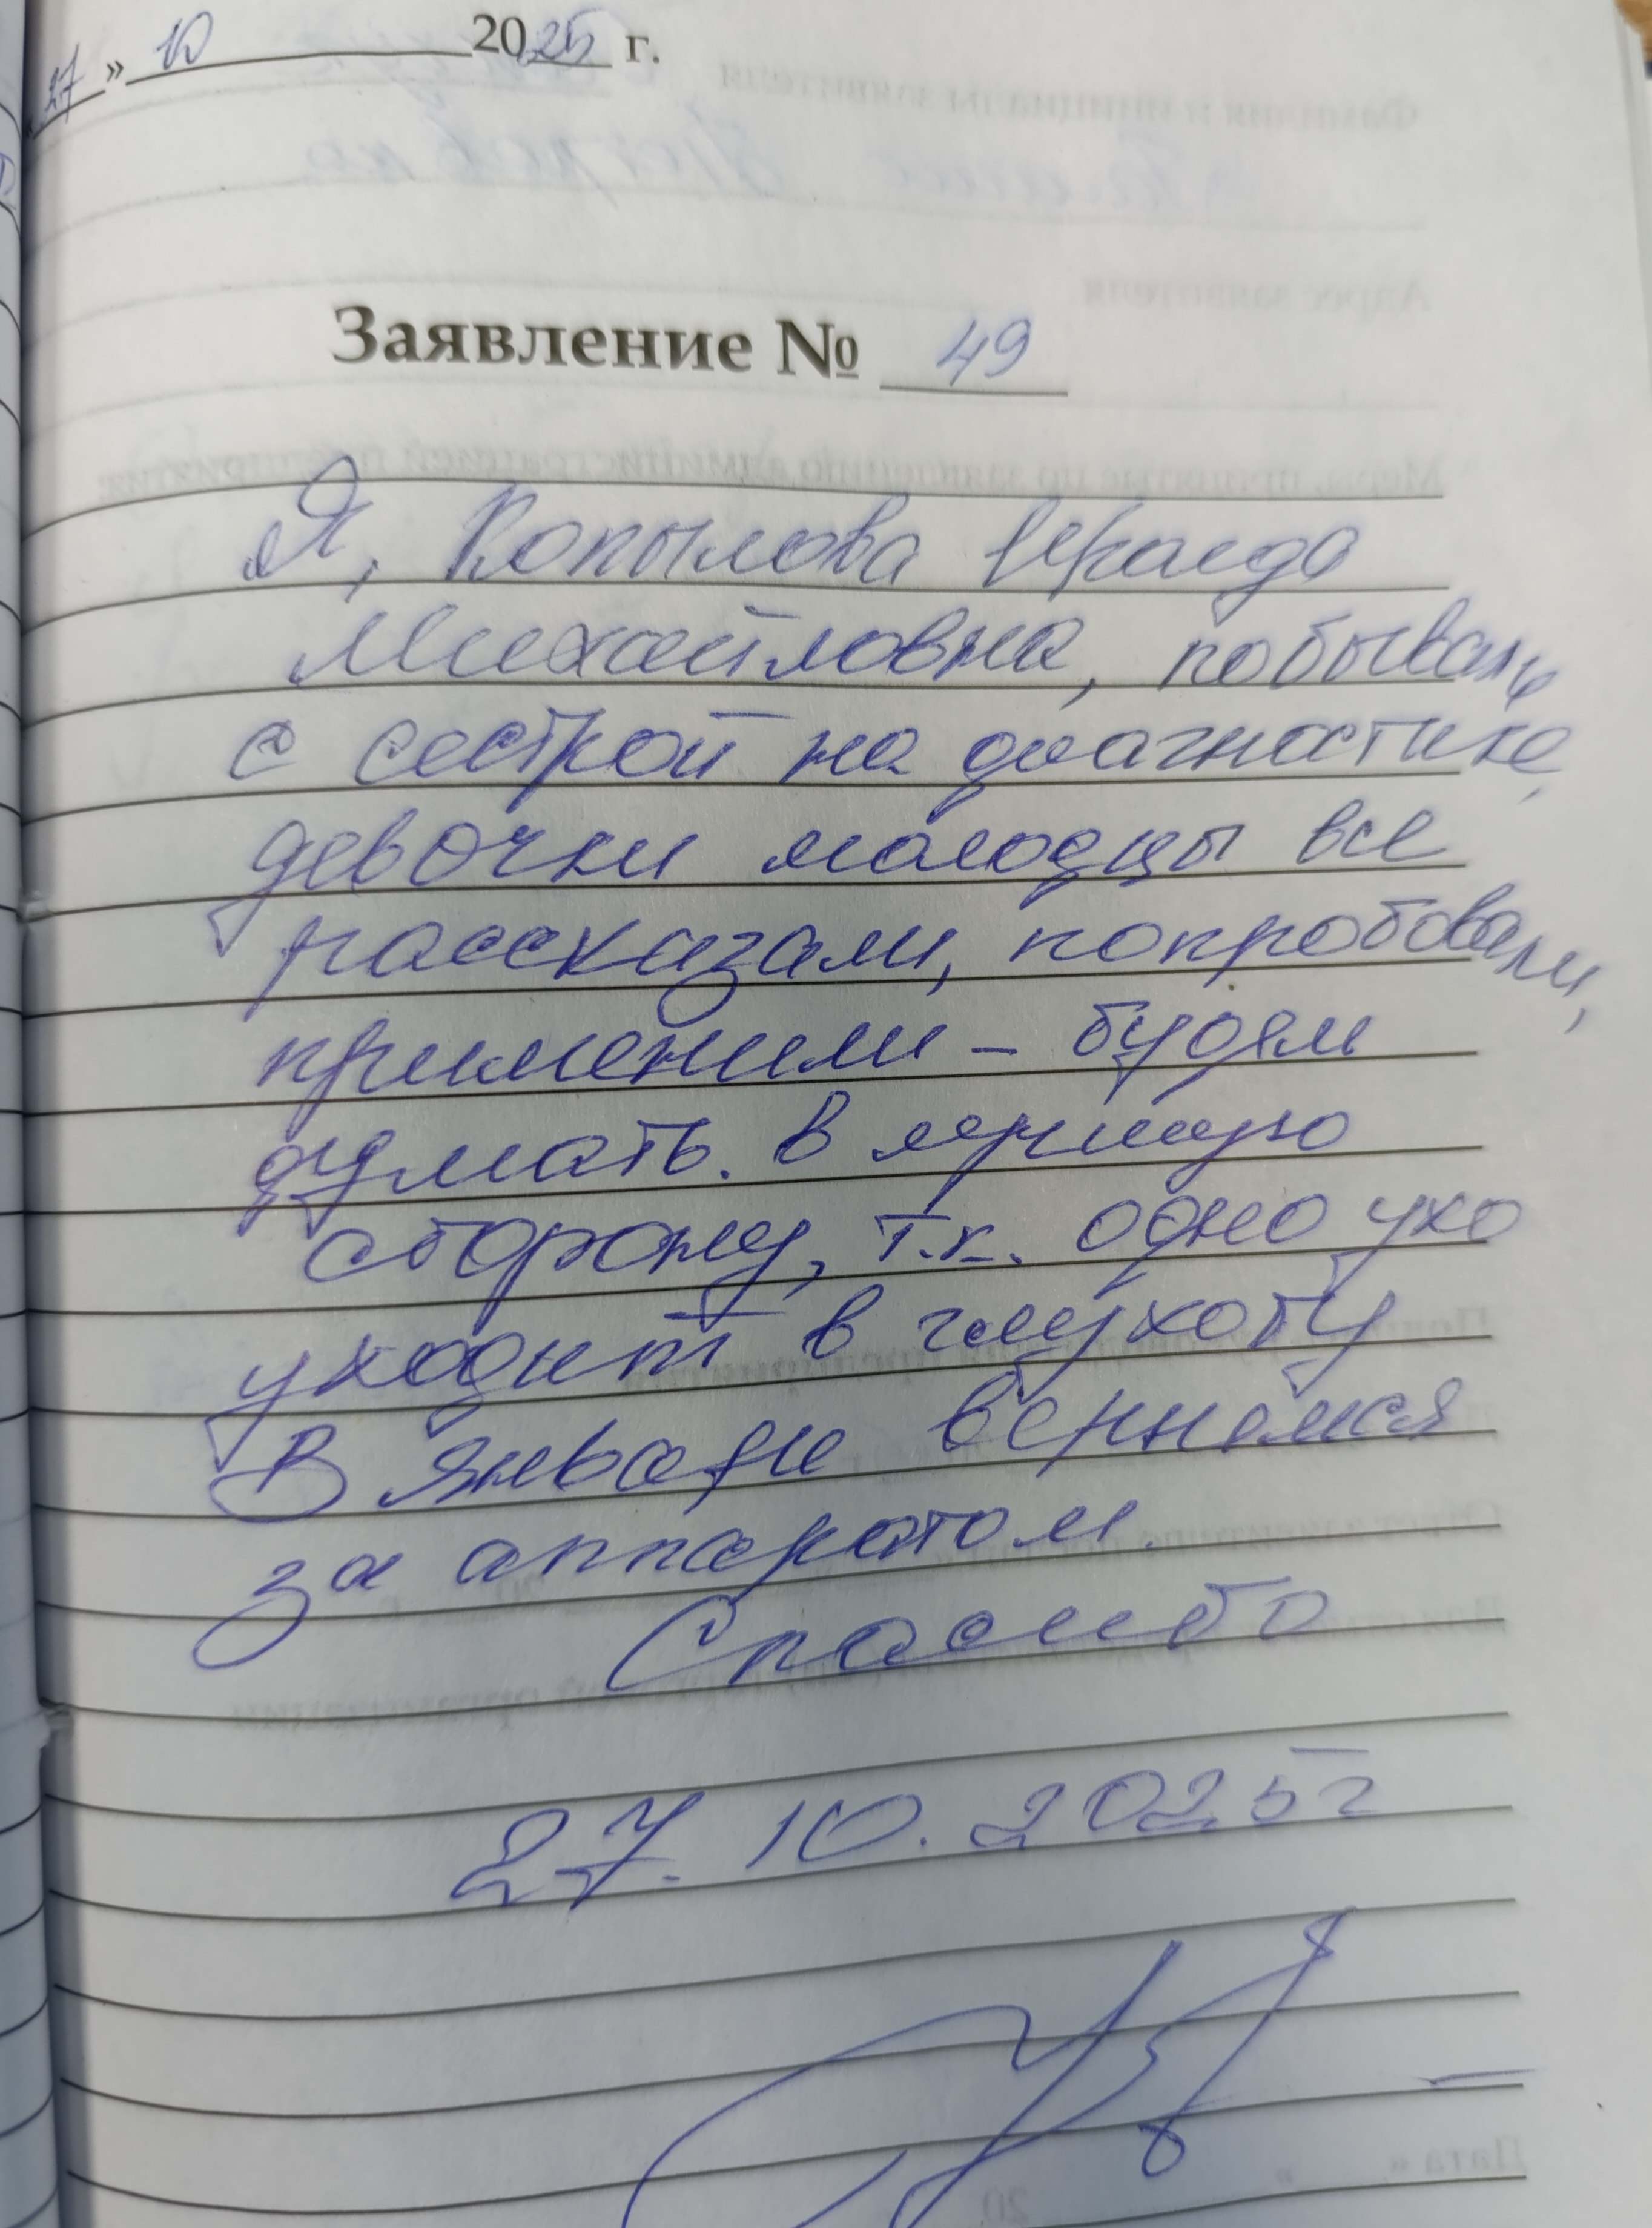 27 » 10 2025 г.
Заявление № 49
Я, Копылова Ираида
Михайловна, побывали
с сестрой на диагностике,
девочки молодцы все
рассказали, попробовали,
применили – будем
думать. в лучшую
сторону, т.к. одно ухо
уходит в глухоту
В январе вернемся
за аппаратом.
Спасибо
27. 10. 2025 г